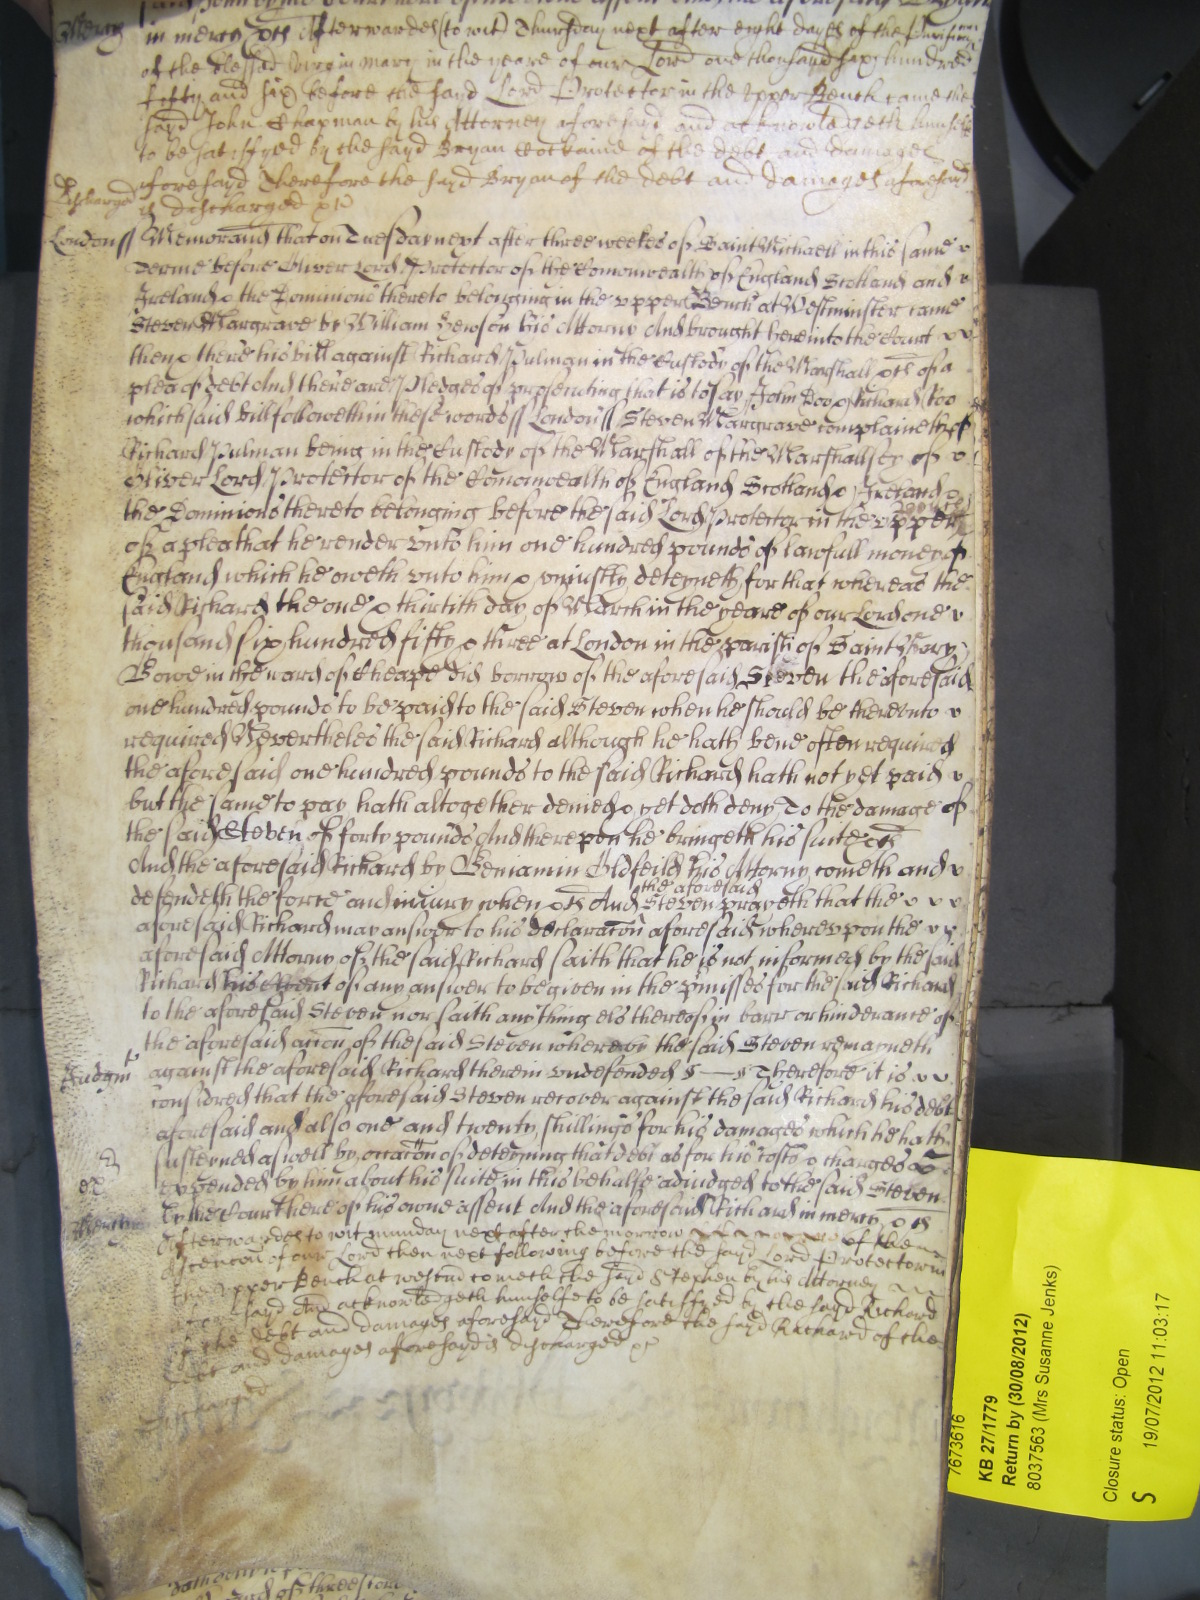 Mercy in mercy &c Afterwardes (to wit) Thursday next after eight dayes of the Purificac̃on
of the blessed Virgin Mary in the yeare of our Lord one thousand six hundred
fifty and six before the sayd Lord Protector in the upper Bench came the
sayd John Chapman by his Attorney aforesayd and acknowledgeth himselfe
to be satisfyed by the sayd Bryan of the debt and damages
aforesayd Therefore the sayd Bryan of the debt and damages aforesayd
Discharged is discharged &c
London ss Memorand that on Tuesday next after three weekes of Saint Michaell in this same
terme before Oliver Lord Protector of the Comonwealth of England Scotland and
Ireland & the Dominions thereto belonging in the upper Bench at Westminster came
Steven Hargrave by William Hewson his Attorny And brought here into the Court
then & there his bill against Richard Pulman in the Custody of the Marshall &c of a
plea of debt And there are Pledges of prosecuting that is to say John Doo & Richard Roo
which said bill followeth in these words ss London ss Steven Hargrave complaineth of
Richard Pulman being in the Custody of the Marshall of the Marshallsey of
Oliver Lord Protector of the Comonwealth of England Scotland & Ireland &
the Dominions thereto belonging before the said Lord Protector in the upper Bench
of a plea that he render unto him one hundred pounds of lawfull money of
England which he oweth unto him & uniustly deteyneth for that whereas the
said Richard the one & thirtith day of March in the yeare of our Lord one
thousand six hundred fifty & three at London in the parish of Saint Mary
Bowe in the ward of Cheape did borrow of the aforesaid Steven the aforesaid
one hundred pounds to be paid to the said Steven when he should be thereunto
required Nevertheles the said Richard although he hath bene often required
the aforesaid one hundred pounds to the said Richard hath not yet paid
but the same to pay hath altogether denied & yet doth deny To the damage of
the said Steven of forty pounds And thereupon he bringeth his suite &c
And the aforesaid Richard by Beniamin Oldfeild his Attorny cometh and
defendeth the force and iniury when &c And the aforesaid Steven prayeth that the
aforesaid Richard may answer to his declarac̃on aforesaid whereupon the
aforesaid Attorny of the said Richard saith that he is not informed by the said
Richard his Client of any answer to be given in the p̃misses for the said Richard
to the aforesaid Steven nor saith any thing els thereof in barr or hinderance of
the aforesaid acc̃on of the said Steven whereby the said Steven remayneth
Judgmt against the aforesaid Richard therein undefended Therefore it is
considred that the aforesaid Steven recover against the said Richard his debt
aforesaid and also one and twenty shillings for his damages which he hath
susteyned as well by occac̃on of deteyning that debt as for his costs & charges
ex expended by him about his suite in this behalfe adiudged to the said Steven
by the Court here of his owne assent And the aforesaid Richard in mercy &c
Mercy Afterwardes to wit munday next after the morrow of the
Ascencon of our Lord then next following before the sayd Lord Protector in
the upper Bench at westm̃ cometh the sayd Stephen by his Attorney
aforesayd And acknowledgeth himselfe to be satisfyed by the sayd Richard
of the debt and damages aforesayd Therefore the sayd Richard of the
debt and damages aforesayd is discharged &c
Discharged
7673616
KB 27/1779
Return by (30/08/2012)
8037563 (Mrs Susanne Jenks)
Closure status: Open
S 19/07/2012 11:03:17